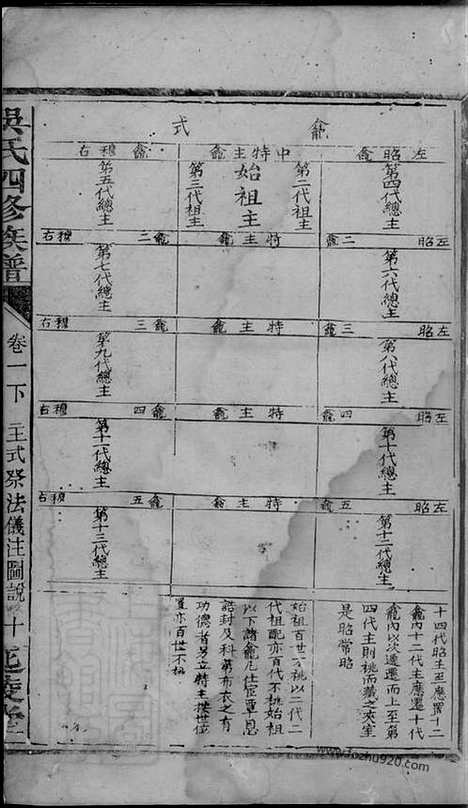 龕式
左昭龕
中特主龕
右穆龕
第四代總主
第二代祖主
始祖主
第三代祖主
第五代總主
左昭二龕
特主龕
右穆二龕
第六代總主
第七代總主
左昭三龕
特主龕
右穆三龕
第八代總主
第九代總主
左昭四龕
特主龕
右穆四龕
第十代總主
左昭五龕
特主龕
右穆五龕
第十二代總主
第十三代總主
十四代昭主至應置十二
龕內十二代主應遷十代
龕內以次遞遷而上至第
四代主則祧而藏之夾室
是昭常昭
始祖百世不祧以二代三
代祖配亦百代不祧始祖
以下諸龕凡仕宦覃恩
誥封及科第布衣之有
功德者另立特主按世位
置亦百世不祧
吳氏四修族譜
卷一下
主式祭法儀注圖說
十
www.jiazhu920.com